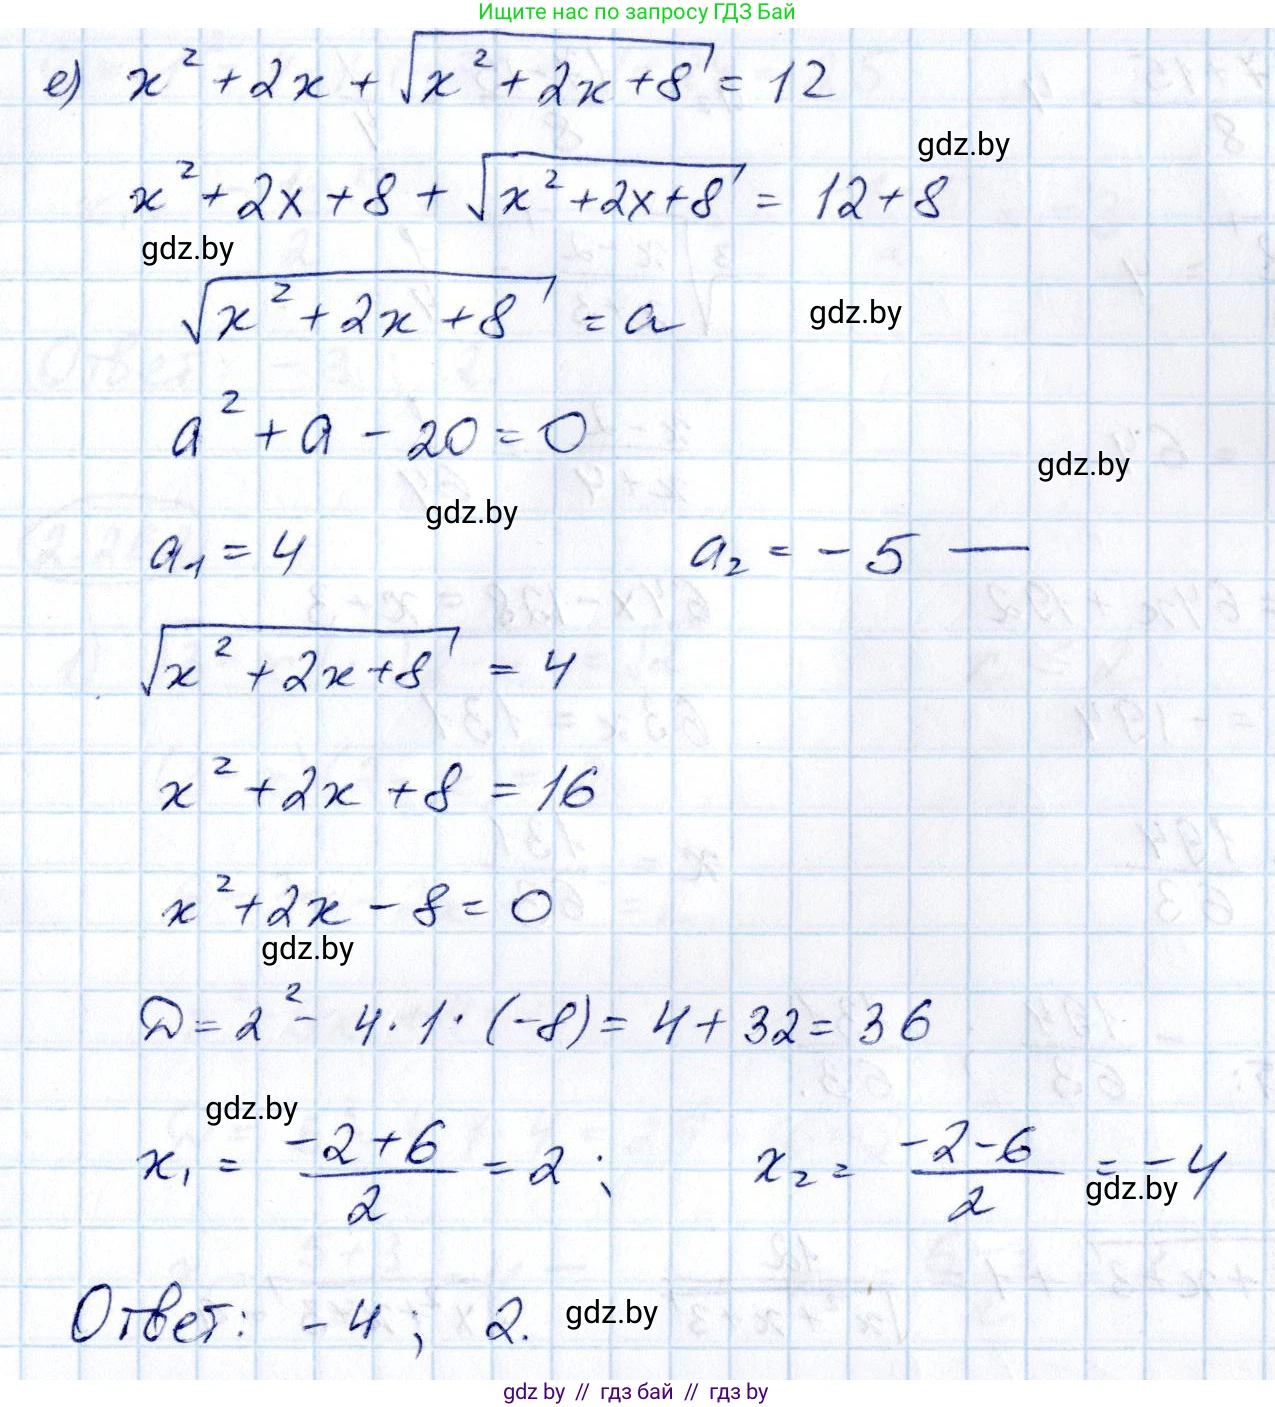 Ищите нас по запросу ГДЗ Бай
е) x² + 2x + √(x² + 2x + 8) = 12
gdz.by
x² + 2x + 8 + √(x² + 2x + 8) = 12 + 8
gdz.by
√(x² + 2x + 8) = a
gdz.by
a² + a - 20 = 0
gdz.by
gdz.by
a₁ = 4 a₂ = - 5 —
√(x² + 2x + 8) = 4
x² + 2x + 8 = 16
x² + 2x - 8 = 0
gdz.by
D = 2² - 4 · 1 · (-8) = 4 + 32 = 36
gdz.by
x₁ = (-2+6)/2 = 2 ; x₂ = (-2-6)/2 = -4
gdz.by
Ответ: -4 ; 2.
gdz.by
gdz by // гдз бай // gdz by